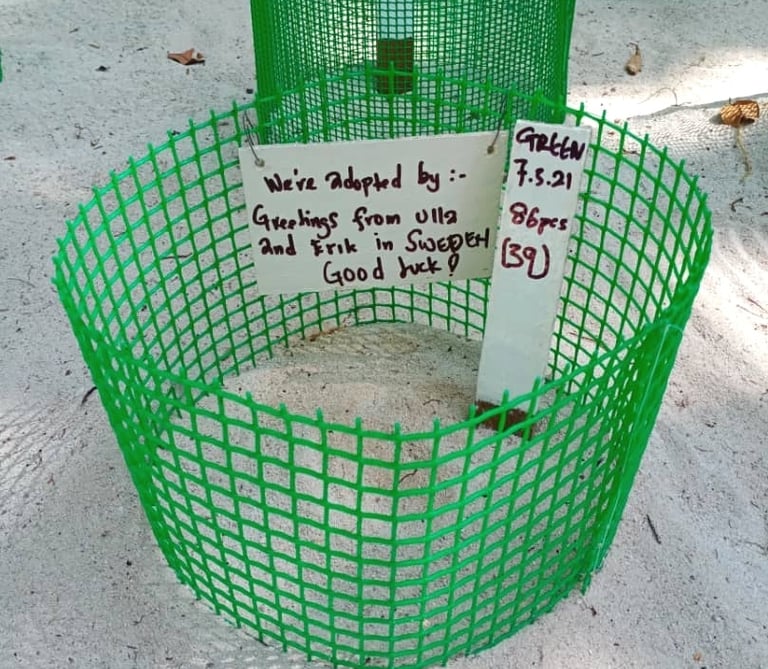 We're adopted by :-
Greetings from Ulla
and Erik in SWEDEN
Good luck!
GREEN
7.5.21
86pcs
(39)